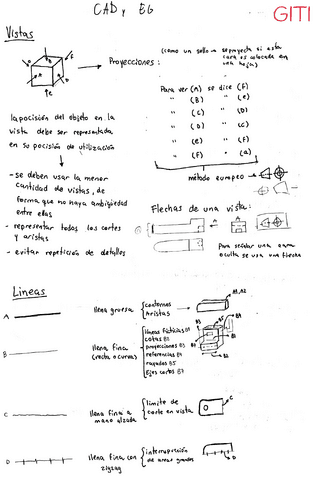 CAD y EG
GITI
Vistas
Proyecciones:
(como un sello → se proyecta si esta
cara es colocada en
una hoja)
Para ver (A) se dice (F)
" (B) " (E)
" (C) " (D)
" (D) " (C)
" (E) " (F)
" (F) " (A)
método europeo →
la posición del objeto en la
vista debe ser representada
en su posición de utilización
- se deben usar la menor
cantidad de vistas, de
forma que no haya ambigüedad
entre ellas
- representar todos los cortes
y aristas
- evitar repetición de detalles
Flechas de una vista:
Para señalar una cara
oculta se usa una flecha
Lineas
A
llena gruesa
contornos
Aristas
A1, A2
B
llena fina
(recta o curva)
líneas ficticias B1
cotas B2
proyecciones B3
referencias
rayados B5
Ejes cortos B7
C
llena fina a
mano alzada
limite de
corte en vista
C
D
llena fina con
zigzag
interrupción
de areas grandes
D